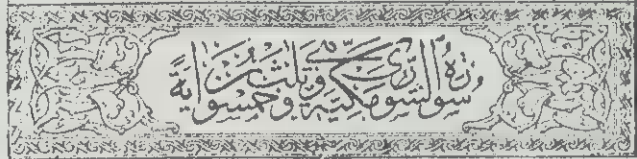 سورة الشورى مكية وهي ثلث وخمسون اية